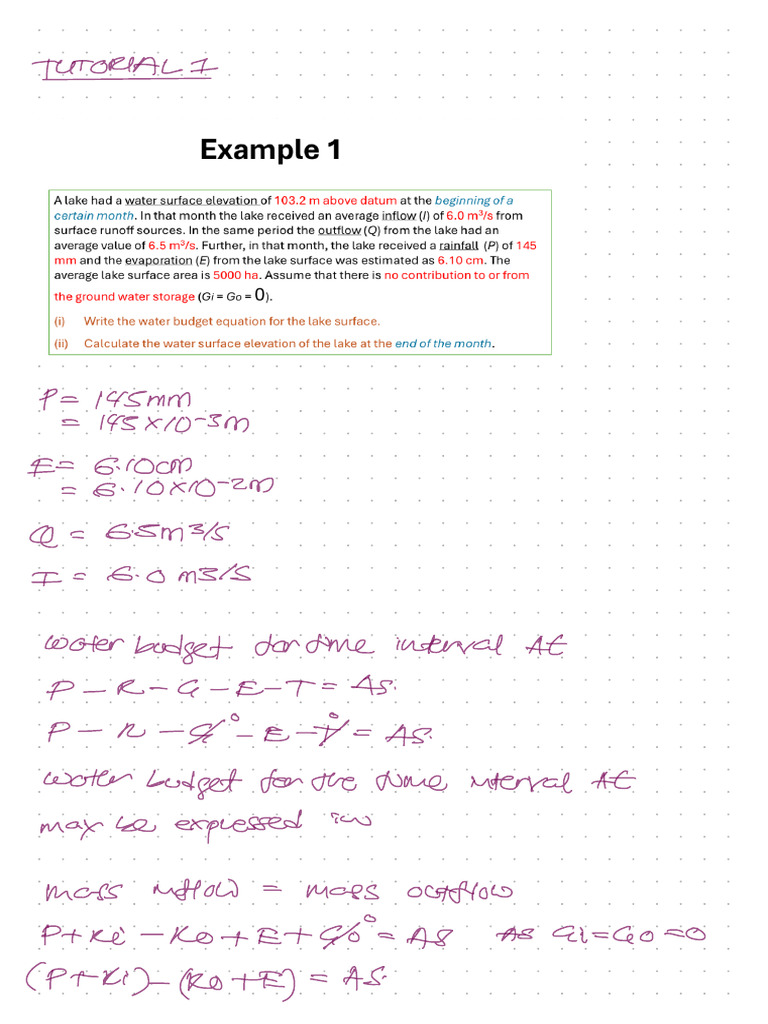 TUTORIAL 1
Example 1
A lake had a water surface elevation of 103.2 m above datum at the beginning of a
certain month. In that month the lake received an average inflow (I) of 6.0 m³/s from
surface runoff sources. In the same period the outflow (Q) from the lake had an
average value of 6.5 m³/s. Further, in that month, the lake received a rainfall (P) of 145
mm and the evaporation (E) from the lake surface was estimated as 6.10 cm. The
average lake surface area is 5000 ha. Assume that there is no contribution to or from
the ground water storage (Gi = Go = 0).
(i) Write the water budget equation for the lake surface.
(ii) Calculate the water surface elevation of the lake at the end of the month.
P = 145mm
= 145 × 10-3m
E = 6.10cm
= 6.10×10-2m
Q = 6.5m3/s
I = 6.0 m3/s
water budget for time interval Δt
P - R - G - E - T = ΔS.
P - R - G 0 - E - T 0 = ΔS.
water budget for the time interval Δt
may be expressed
mass inflow = mass outflow
P + Ri - Ro + E + Go 0 = ΔS As Gi = Go = 0
(P + Ri) - (Ro + E) = ΔS.